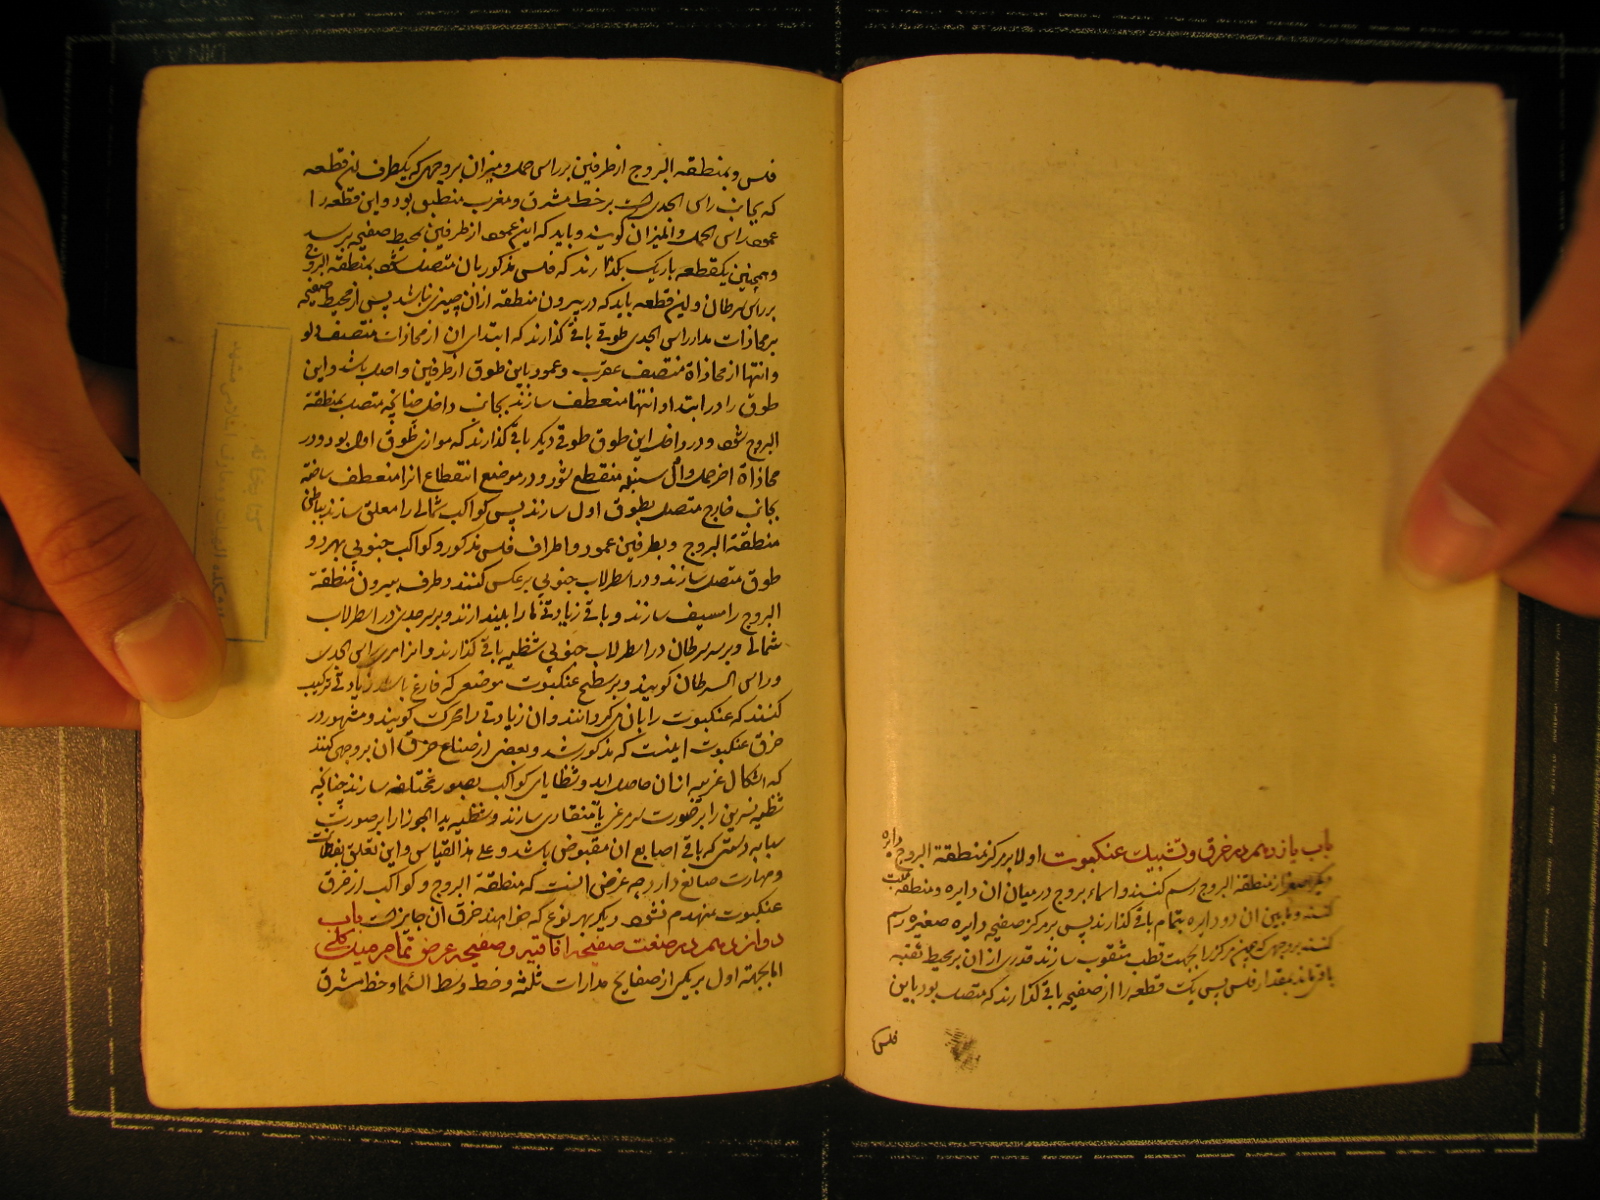 باب یازدهم در خرق و تشبیك عنکبوت اولا بر مرکز منطقة البروج دایره
دیگر صغیرتر از منطقة البروج رسم کنند و اسماء بروج در میان ان دایره و منطقه ثبت
کنند و مابین ان دو دایره بتمام باقی گذارند پس بر مرکز صفیحه دایره صغیره رسم
کنند بروجهی که چون مرکز را بجهت قطب مثقوب سازند قدری از ان بر محیط ثقبه
باقی ماند بمقدار فلس پس یك قطعه را از صفیحه باقی گذارند که متصل بود باین
فلس
فلس و بمنطقه البروج از طرفین بر راس حمل و میزان بروجهی که یکطرف این قطعه
که بجانب راس الجدی است بر خط مشرق و مغرب منطبق بود و این قطعه را
عمود راس الحمل و المیزان گویند و باید که این عمود از طرفین بمحیط صفیحه برسد
و همچنین یکقطعه باریک بگذارند که فلس مذکور بان متصل شود بمنطقه البروج
بر راس سرطان و این قطعه باید که در بیرون منطقه ازان چیزی نباشد پس از محیط صفیحه
بر محاذات مدار راس الجدی طوقی باقی گذارند که ابتدای ان از محاذات منتصف دلو
و انتها از محاذاة منتصف عقرب و عمود باین طوق از طرفین واصل باشد و این
طوق را در ابتدا و انتها منعطف سازند بجانب داخل چنانچه متصل بمنطقة
البروج شود و در داخل این طوق طوقی دیگر باقی گذارند که موازی طوق اول بود و در
محاذاة اخر حمل و اول سنبله منقطع شود و در موضع انقطاع انرا منعطف ساخته
بجانب خارج متصل بطوق اول سازند پس کواکب شمالی را معلق سازند بباطن
منطقة البروج و بطرفین عمود و اطراف فلس مذکور و کواکب جنوبی بهر دو
طوق متصل سازند و در اسطرلاب جنوبی بر عکس کنند و طرف بیرون منطقة
البروج را مسیف سازند و باقی زیادتی ها را بیندازند و بر سر جدی در اسطرلاب
شمالی و بر سر سرطان در اسطرلاب جنوبی شظیه باقی گذارند و انرا مری راس الجدی
و راس السرطان گویند و بر سطح عنکبوت موضعی که فارغ باشد زیادتی ترکیب
کنند که عنکبوت را بان میگردانند و ان زیادتی را محرک گویند و مشهور در
خرق عنکبوت اینست که مذکور شد و بعضی از صناع خرق ان بروجهی کنند
که اشکال غریبه ازان حاصل اید و شظایای کواکب بصور مختلفه سازند چنانچه
شظیه نسرین را بر صورت سر مرغی یا منقاری سازند و شظیه ید الجوزا را بر صورت
سبابه دستی که باقی اصابع ان مقبوض باشد و علی هذا القیاس و این تعلق بفطانت
و مهارت صانع دارد چه غرض انست که منطقة البروج و کواکب از خرق
عنکبوت منهدم نشود دیگر بهر نوع که خواهند خرق ان جایز است باب
دوازدهم در صنعت صفیحه افاقیه و صفیحه عرض تمام میل کلی
اما بجهة اول بر یکی از صفایح مدارات ثلثه و خط وسط السما و خط مشرق